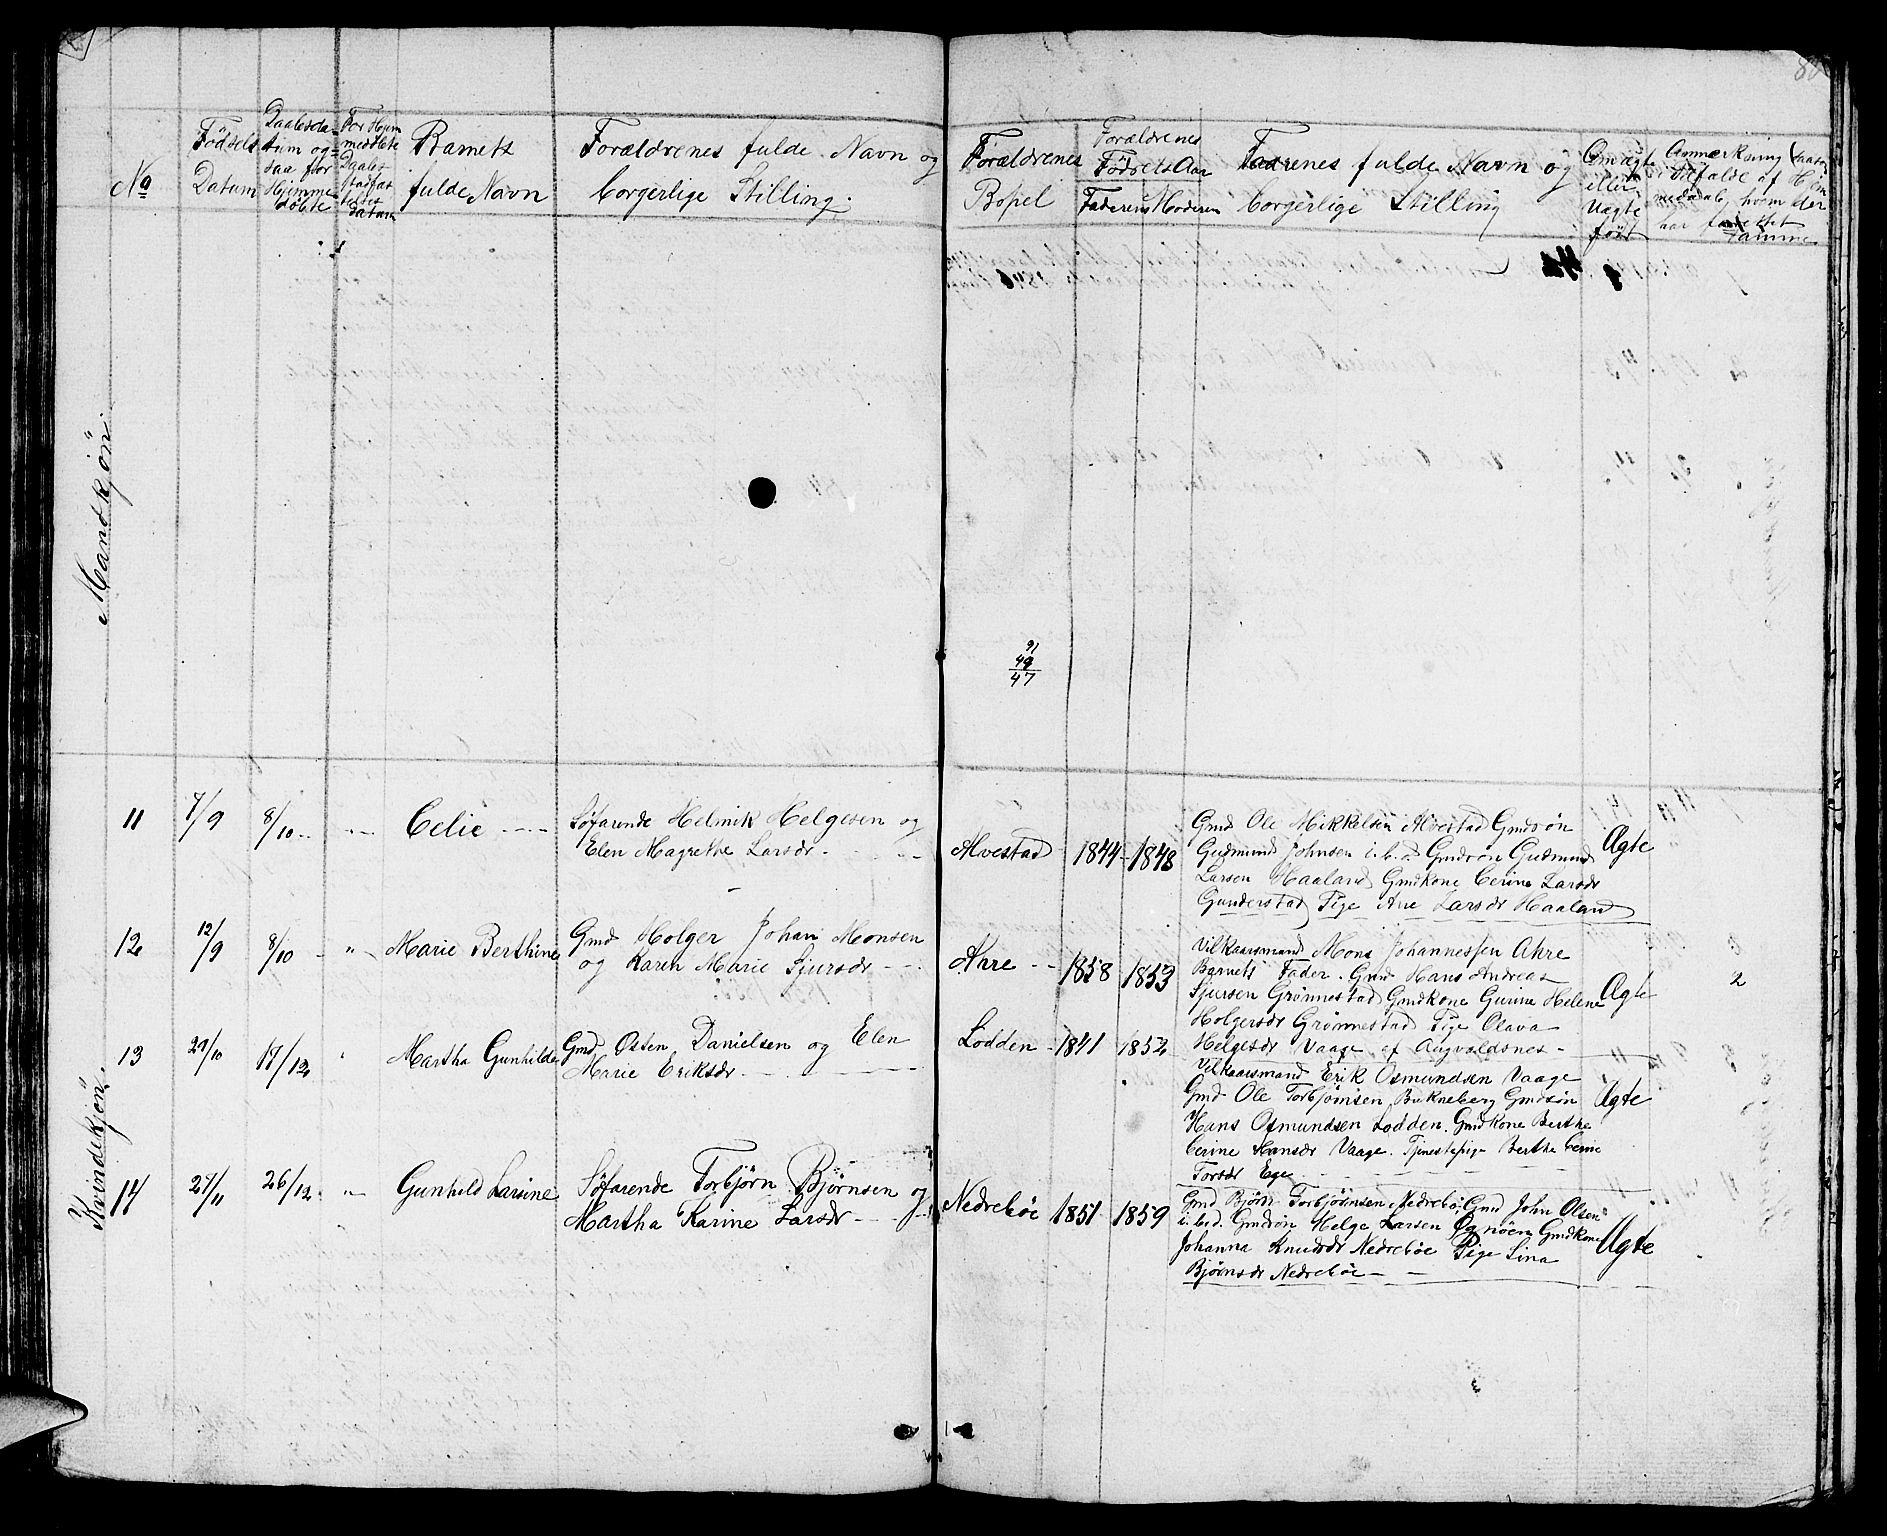 80
No
Fødsels
Datum
Daabsda-
tum og-
saa for
Hjemme-
døbte
For Hjem
meddøbte
Daabs
Stadfæs
telses
Datum
Barnets
fulde Navn
Forældrenes fulde Navn og
borgerlige Stilling.
Forældrenes
Bopel
Forældrenes
Fødsels Aar
Faderens Moderen
Faderenes fulde Navn og
borgerlige Stilling
Om ægte
eller
Uægte
født
Anmærkning (saasom
i Tilfælde af Hjem
medaab, hvem der
har forrettet
samme
Mandkjøn.
91
49
47
Kvindekjøn.
11
7/9
8/10
Celie
Søfarende Helmik Helgesen og
Elen Magrethe Larsdr
Alvestad
1844
1848
Gmd Ole Mikkelsen Alvestad Gmdsøn
Gudmund Johnsen i.b.d Gmdsøn Gudmund
Larsen Haaland Gmdkone Cerine Larsdr
Gunderstad Pige Ane Larsdr Haaland
Ægte
12
12/9
8/10
Marie Berthine
Gmd Holger Johan Monsen
og Karen Marie Sjursdr
Ahre
1858
1853
Vilkaarsmand Mons Johannessen Ahre
Barnets Fader. Gmd Hans Andreas
Sjursen Grønnestad Gmdkone Gurine Helene
Holgersdr Grønnestad Pige Olava
Helgesdr Vaage af Augvaldsnes
Ægte
2
13
29/10
17/12
Martha Gunhilde
Gmd Osten Danielsen og Elen
Marie Eriksdr
Lodden
1841
1852
Vilkaarsmand Erik Osmundsen Vaage
Gmd Ole Torbjørnsen Bukneberg Gmdsøn
Hans Osmundsen Lodden. Gmdkone Berthe
Cerine Hansdr Vaage. Tjenestepige Berthe Cerine
Torsdr Ege
Ægte
14
27/11
26/12
Gunhild Larsine
Søfarende Torbjørn Bjørnsen og
Martha Karine Larsdr
Nedrebøe
1851
1859
Gmd Bjørn Torbjørnsen Nedrebø. Gmd John Olsen
i.b.d. Gmdsøn Helge Larsen Ognøen Gmdkone
Johanna Knudsdr Nedrebøe Pige Lina
Bjørnsdr Nedrebøe
Ægte